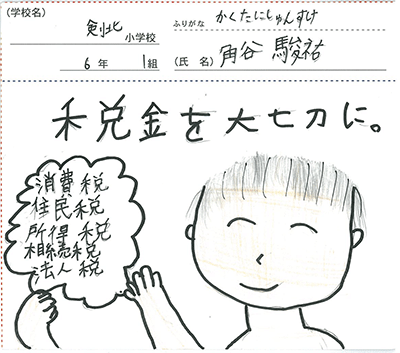 (学校名) 剣北 小学校
6年 1組
ふりがな かくたにしゅんすけ
(氏 名) 角谷 駿祐
税金を大切に。
消費税
住民税
所得税
相続税
法人税